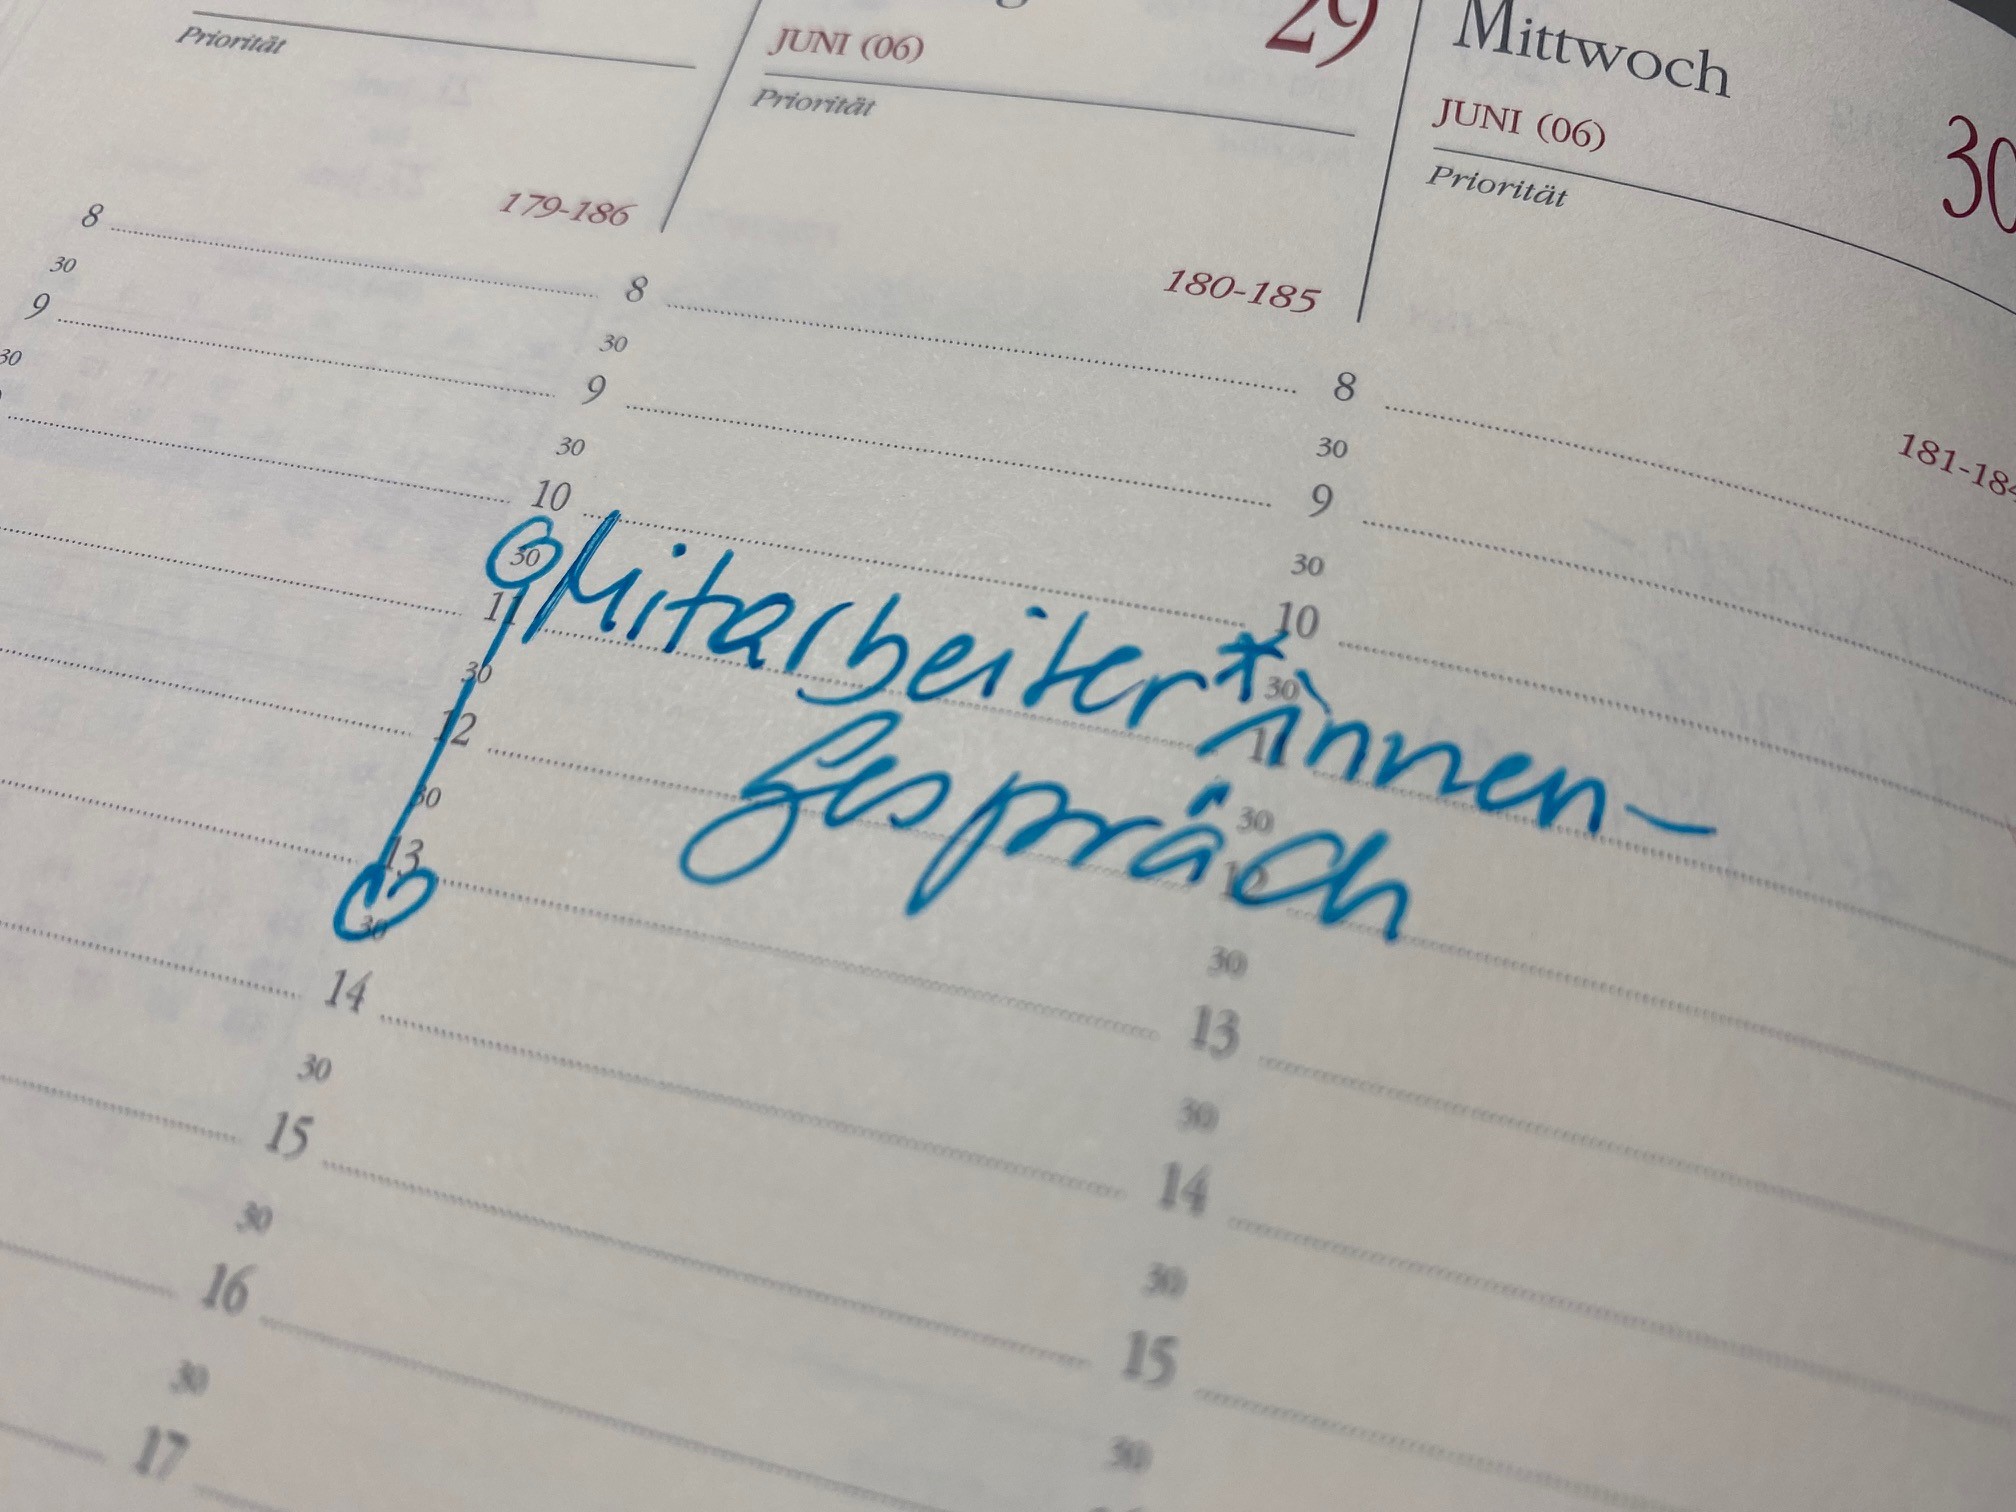 Priorität
179-186
8
30
9
30
29
JUNI (06)
Priorität
180-185
8
30
9
30
10
30
11
30
12
30
13
30
14
30
15
30
16
30
17
Mitarbeiter*innen-
Gespräch
Mittwoch
30
JUNI (06)
Priorität
181-184
8
30
9
30
10
30
11
30
12
30
13
30
14
30
15
30